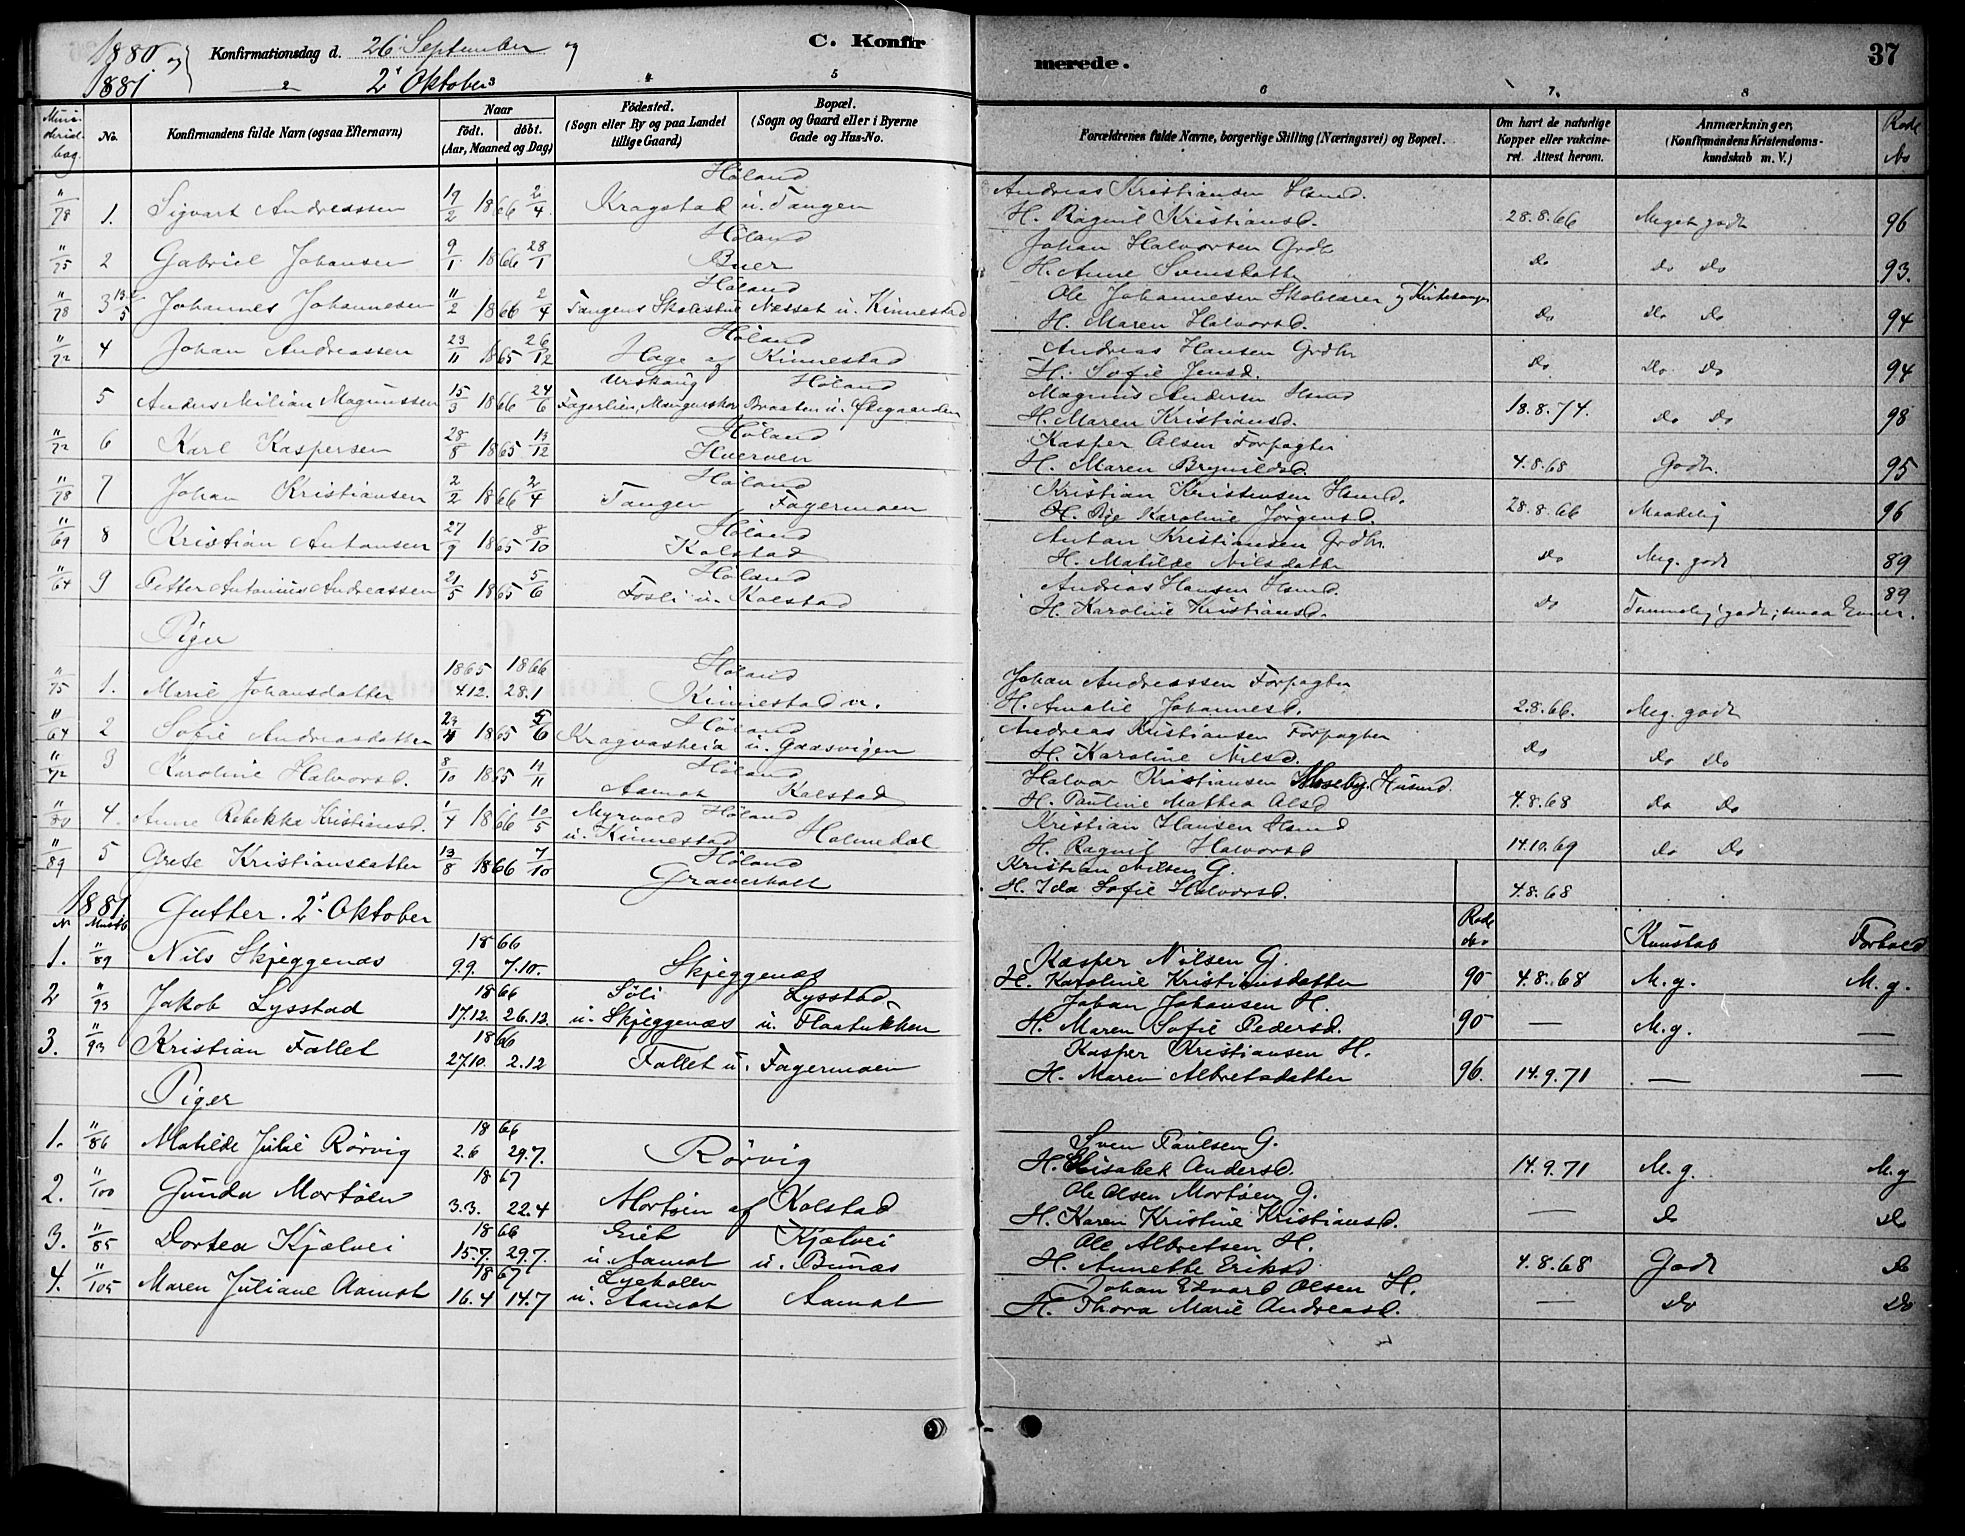 1880 og
1881
Konfirmationsdag d. 26. September og
2' Oktober
C. Konfirmerede.
37
No.
Konfirmandens fulde Navn (ogsaa Efternavn)
Naar
födt. döbt.
(Aar, Maaned og Dag)
Födested.
(Sogn eller By og paa Landet tillige Gaard)
Bopæl.
(Sogn og Gaard eller i Byerne Gade og Hus-No.
Forældrenes fulde Navne, borgerlige Stilling (Næringsvei) og Bopæl.
Om havt de naturlige Kopper eller vakcineret. Attest herom.
Anmærkninger.
(Konfirmandens Kristendomskundskab m. V.)
Rode No
"/78 1. Sigvart Andreassen 19/2 1866 2/4 Høland Kragstad u. Tangen Andreas Kristiansen Hsmd. H. Ragnil Kristiansd. 28.8.66 Meget godt 96
"/75 2 Gabriel Johansen 9/1 1866 28/1 Høland Buer Johan Halvorsen Grdbr H. Anne Svensdatter do do do 93.
"/78 3 Johannes Johannesen 11/2 1866 2/4 Høland Tangens Skolestue Næsset u. Kinnestad Ole Johannesen Skolelærer og Kirkesanger H. Maren Halvorsd. do do do 94
"/72 4 Johan Andreassen 23/11 1865 26/12 Høland Hage af Kinnestad Andreas Hansen Grdbr H. Sofie Jensd. do do do 94
5 Anders Milian Magnussen 15/3 1866 24/6 Urskaug Høland Fagerlien, Mangenskov Braaten u. Øegaarden Magnus Andersen Hsmd H. Maren Kristiansd. 18.8.74. do do 98
"/72 6 Karl Kaspersen 28/8 1865 13/12 Høland Huerven Kasper Olsen Forpagter H. Maren Brynildsd. 4.8.68 Godt. 95
"/78 7 Johan Kristiansen 2/2 1866 2/4 Høland Tangen Fagermoen Kristian Kristensen Hsmd. H. Karoline Jørgensd. 28.8.66 Maadelig 96
"/69 8 Kristian Antonsen 27/9 1865 8/10 Høland Kolstad Anton Kristiansen Grdbr. H. Matilde Nilsdatter do Meg. godt 89
"/64 9 Petter Antonius Andreassen 21/5 1865 5/6 Høland Fosli u. Kolstad Andreas Hansen Hsmd. H. Karoline Kristiansd. do Temmelig godt; smaa Evner. 89
Piger
"/75 1. Marie Johansdatter 1865 4.12. 1866 28.1 Høland Kinnestad v. Johan Andreassen Forpagter H. Amalie Johannesd. 28.66. Meg. godt
"/64 2 Sofie Andreasdatter 23/4 1865 5/6 Høland Kragvasheia u. Gaasvigen Andreas Kristiansen Forpagter H. Karoline Nilsd. do do do
"/72 3 Karoline Halvorsd. 8/10 1865 11/11 Høland Aamot Kolstad Halvor Kristiansen Moseby. Husmd. H. Pauline Mathea Olsd 4.8.68 do do
"/80 4. Anne Rebekka Kristiansd. 1/4 1866 10/5 Myrvold Høland u. Kinnestad Holmedal Kristian Hansen Hsmd H. Ragnil Halvorsd 14.10.69 do do
"/89 5 Grete Kristiansdatter 13/8 1866 7/10 Høland Graverholt Kristian Nilsen G. H. Ida Sofie Halvorsd. 4.8.68
1881 Gutter. 2' Oktober
Rode No Kunskab Forhold
1. "/89 Nils Skjeggenæs 1866 9.9. 7.10. Skjeggenæs Kasper Nilsen G. H. Karoline Kristiansdatter 90 4.8.68 M.g. M.g.
2 "/93 Jakob Lysstad 1866 17.12. 26.12. Søli u. Skjeggenæs Lysstad u. Flaatukken Johan Johansen H. H. Maren Sofie Pedersd. 90 — M.g. —
3. "/93 Kristian Fallet 1866 27.10. 2.12 Fallet u. Fagermoen Kasper Kristiansen H. H. Maren Albretsdatter 96. 14.9.71 — —
Piger
1. "/86 Matilde Julie Rørvig 1866 2.6 29.7. Rørvig Sven Paulsen G. H. Elisabet Andersd. 14.9.71 M.g. M.g
2. "/100 Gunda Mortøen 1867 3.3. 22.4 Mortøen af Kolstad Ole Olsen Mortøen G. H. Karen Kristine Kristiansd. — do do
3. "/85 Dortea Kjølvei 1866 15.7. 29.7. Eiet u. Aamot Kjølvei u. Bunæs Ole Albretsen H. H. Annette Eriksd 4.8.68 Godt do
4. "/105 Maren Juliane Aamot 1867 16.4 14.7 Lyekollen u. Aamot Aamot Johan Edvard Olsen H. H. Thora Marie Andreasd. — do do